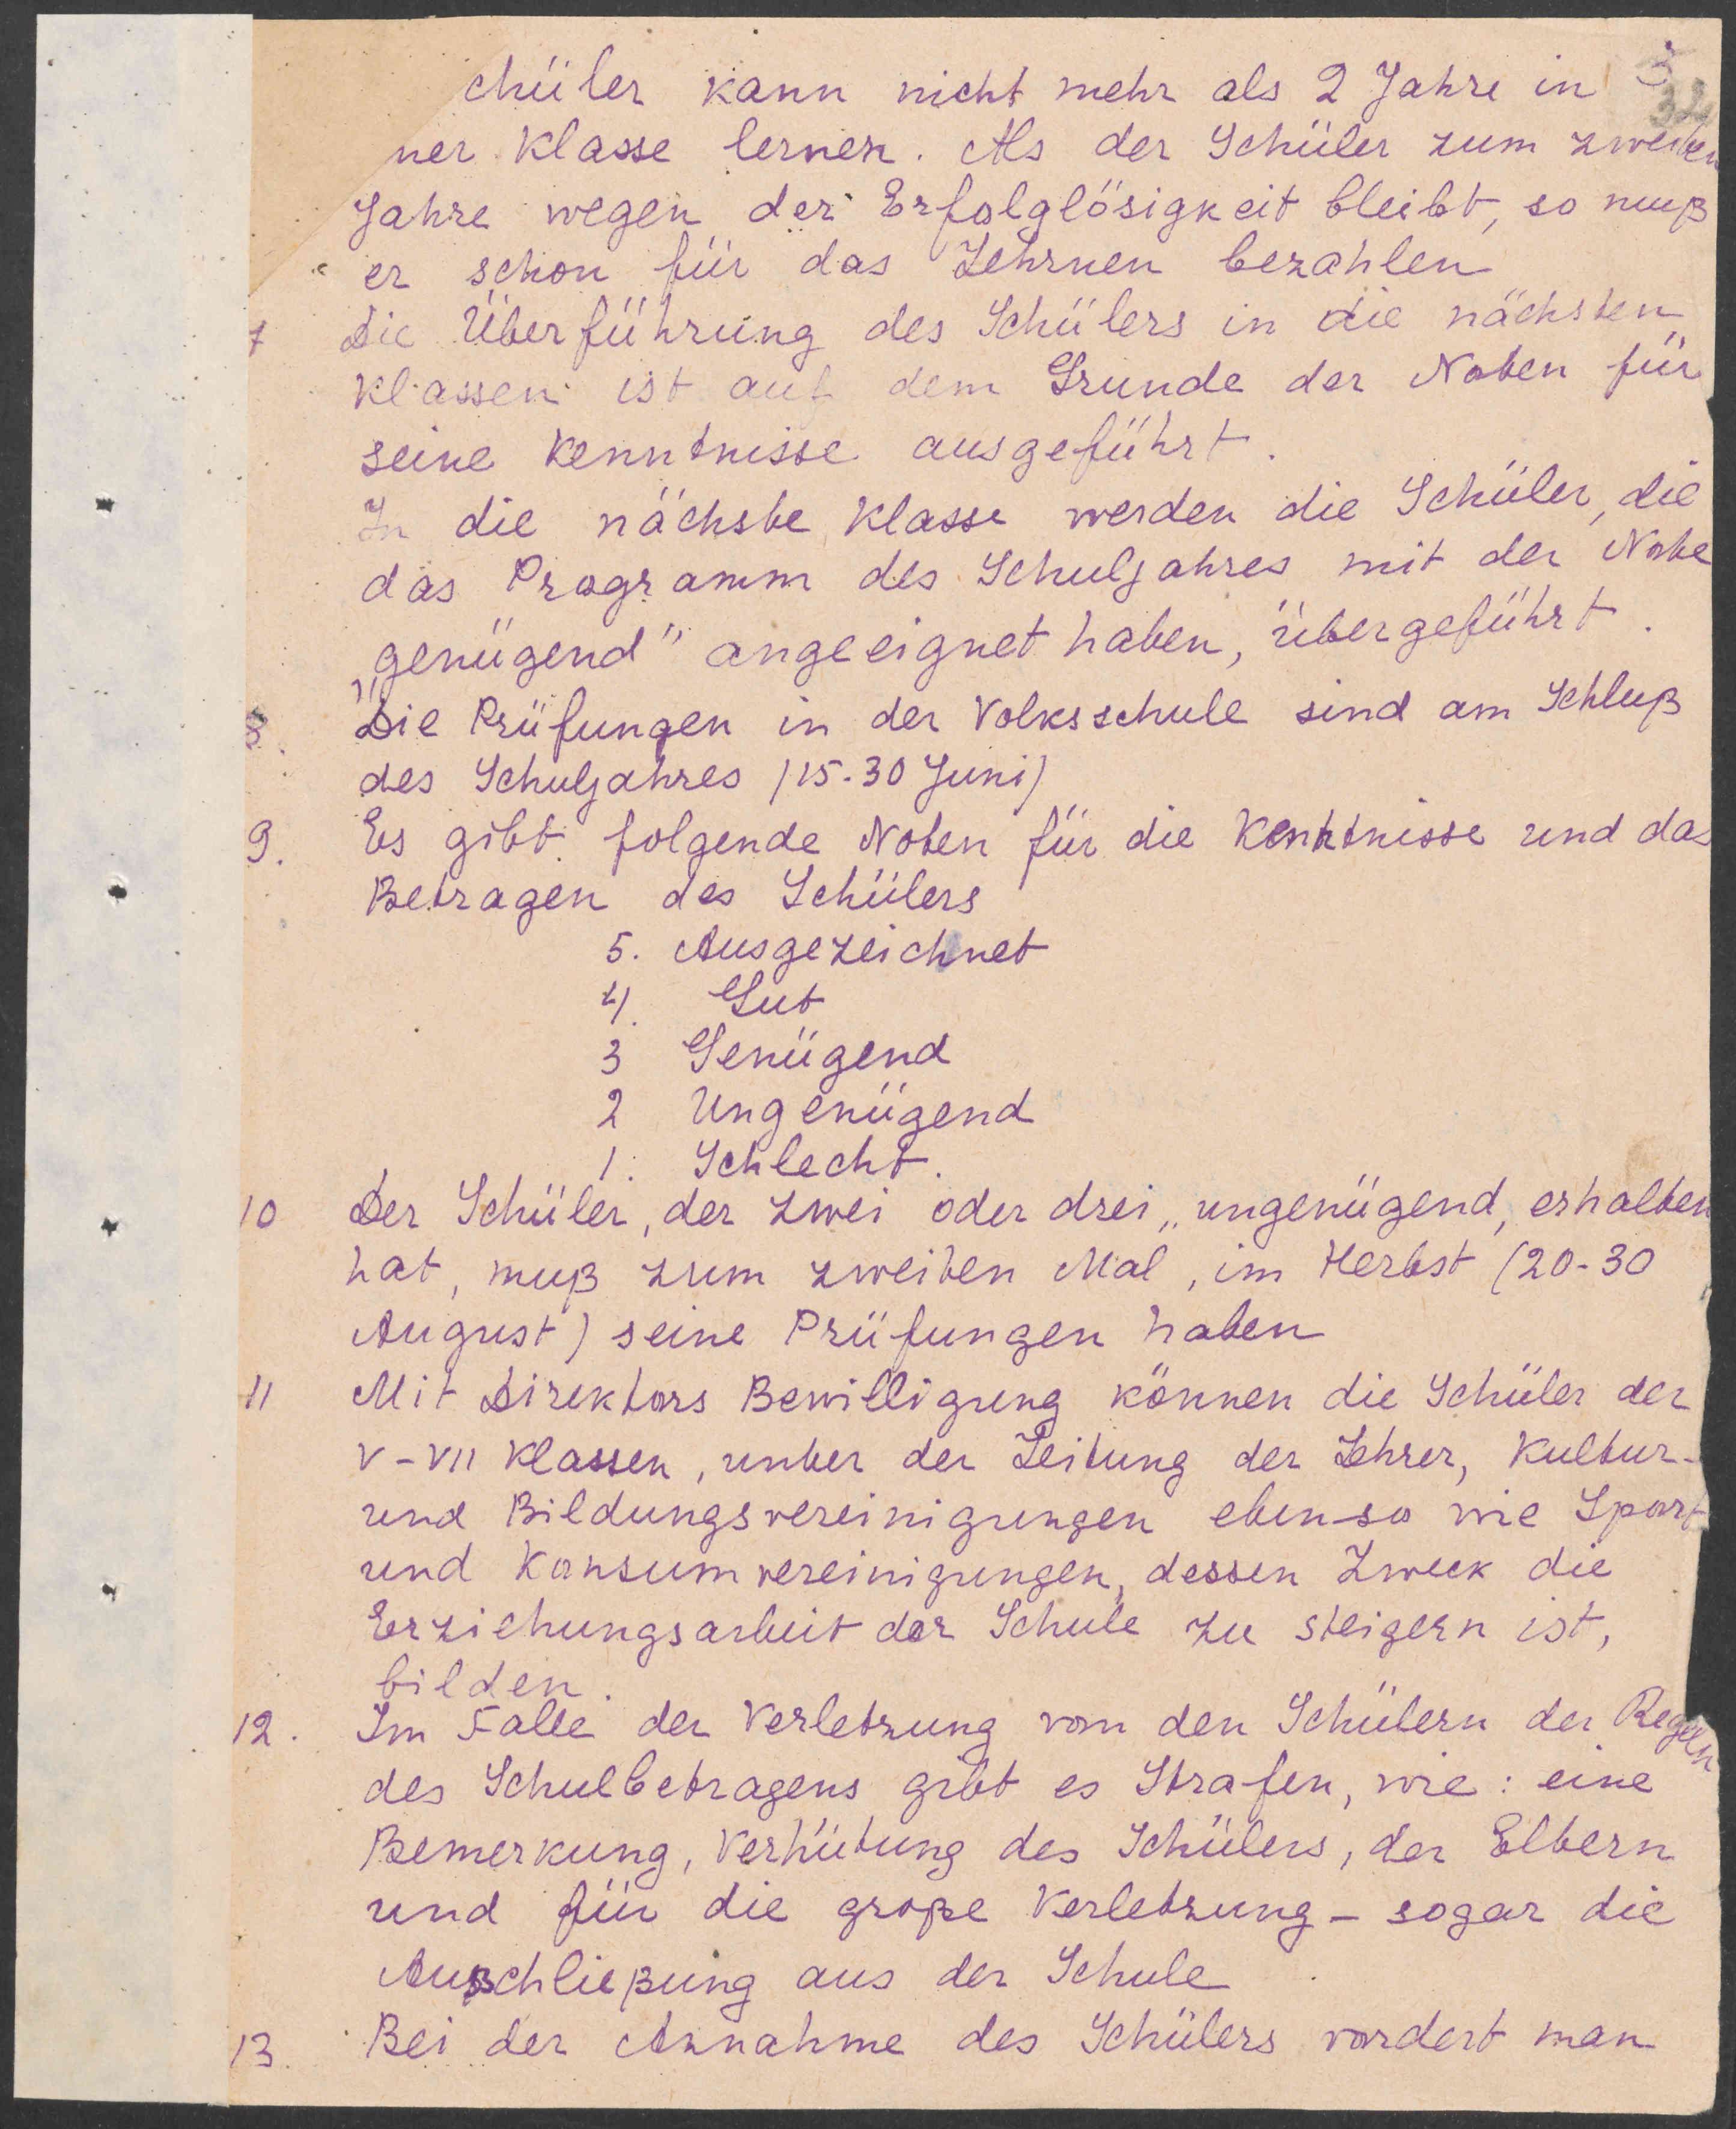 3
32
chüler kann nicht mehr als 2 Jahre in
ner Klasse lernen. Als der Schüler zum zweiten
Jahre wegen der Erfolglösigkeit bleibt, so muß
er schon für das Lehrnen bezahlen
7 Die Überführung des Schülers in die nächsten
Klassen ist auf dem Grunde der Noten für
seine Kenntnisse ausgeführt.
In die nächste Klasse werden die Schüler, die
das Programm des Schuljahres mit der Note
„genügend" angeeignet haben, übergeführt.
8. Die Prüfungen in der Volksschule sind am Schluß
des Schuljahres (15-30 Juni)
9. Es gibt folgende Noten für die Kenntnisse und das
Betragen des Schülers
5. Ausgezeichnet
4. Gut
3 Genügend
2 Ungenügend
1. Schlecht.
10 Der Schüler, der zwei oder drei „ungenügend, erhalten
hat, muß zum zweiten Mal, im Herbst (20-30
August) seine Prüfungen haben
11 Mit Direktors Bewilligung können die Schüler der
V-VII Klassen, unter der Leitung der Lehrer, Kultur-
und Bildungsvereinigungen ebenso wie Sport
und Konsumvereinigungen, dessen Zweck die
Erziehungsarbeit der Schule zu steigern ist,
bilden.
12. Im Falle der Verletzung von den Schülern der Regeln
des Schulbetragens gibt es Strafen, wie: eine
Bemerkung, Verhütung des Schülers, der Eltern
und für die große Verletzung - sogar die
Außchließung aus der Schule
13. Bei der Annahme des Schülers vordert man